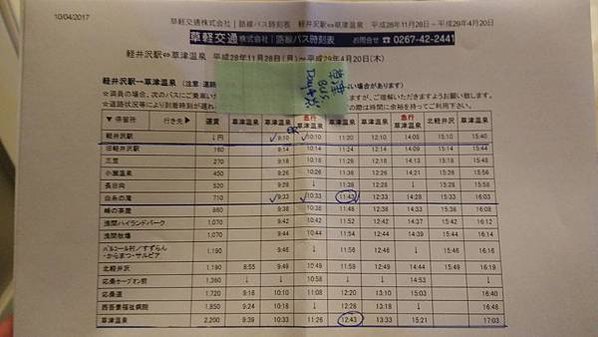 10/04/2017
草軽交通株式会社｜路線バス時刻表 軽井沢駅⇔草津温泉：平成28年11月28日～平成29年4月20日
草軽交通 株式会社｜路線バス時刻表 お問合せ ☎ 0267-42-2441
軽井沢駅⇔草津温泉 平成28年11月28日(月)～平成29年4月20日(木)
軽井沢駅→草津温泉 (注意：道路
※満員の場合、次のバスにご乗車い
が、ご理解いただきますようお願い致します。
※道路状況等により到着時刻が遅れ
の際は時間に余裕を持ってご利用下さい。
草津
Bus
OR
▼停留所 行き先▶ 運賃 草津温泉 草津温泉 急行 草津温泉 草津温泉 草津温泉 急行 草津温泉 北軽井沢 草津温泉
軽井沢駅 ↓円 9:10 10:10 11:20 12:10 14:05 15:10 15:40
旧軽井沢駅 160 9:14 10:14 11:24 12:14 14:09 15:14 15:44
三笠 270 9:18 ↓ 11:28 12:18 14:13 15:18 15:48
小瀬温泉 450 9:26 ↓ 11:36 12:26 14:21 15:26 15:56
長日向 520 9:28 ↓ 11:38 12:28 ↓ 15:28 15:58
白糸の滝 710 9:33 10:33 11:43 12:33 14:28 15:33 16:03
峰の茶屋 860 9:38 10:38 11:48 12:38 14:33 15:38 16:08
浅間ハイランドパーク 1,070 9:42 10:42 11:52 12:42 14:37 15:42 16:12
浅間牧場 1,070 9:44 10:44 11:54 12:44 14:39 15:44 16:14
パルコール村／すずらん・からまつ・サルビア 1,190 9:46 ↓ 11:56 12:46 ↓ 15:46 16:16
北軽井沢 1,190 8:55 9:49 10:49 11:59 12:49 14:44 15:49 16:19
応桑ケーブオン前 1,360 ↓ ↓ 10:58 ↓ ↓ 14:53 ↓
応桑道 1,720 9:16 10:10 11:08 12:20 13:10 15:03 16:40
西吾妻福祉病院 1,850 9:24 10:18 ↓ 12:28 13:18 ↓ 16:48
草津温泉 2,200 9:39 10:33 11:26 12:43 13:33 15:21 17:03